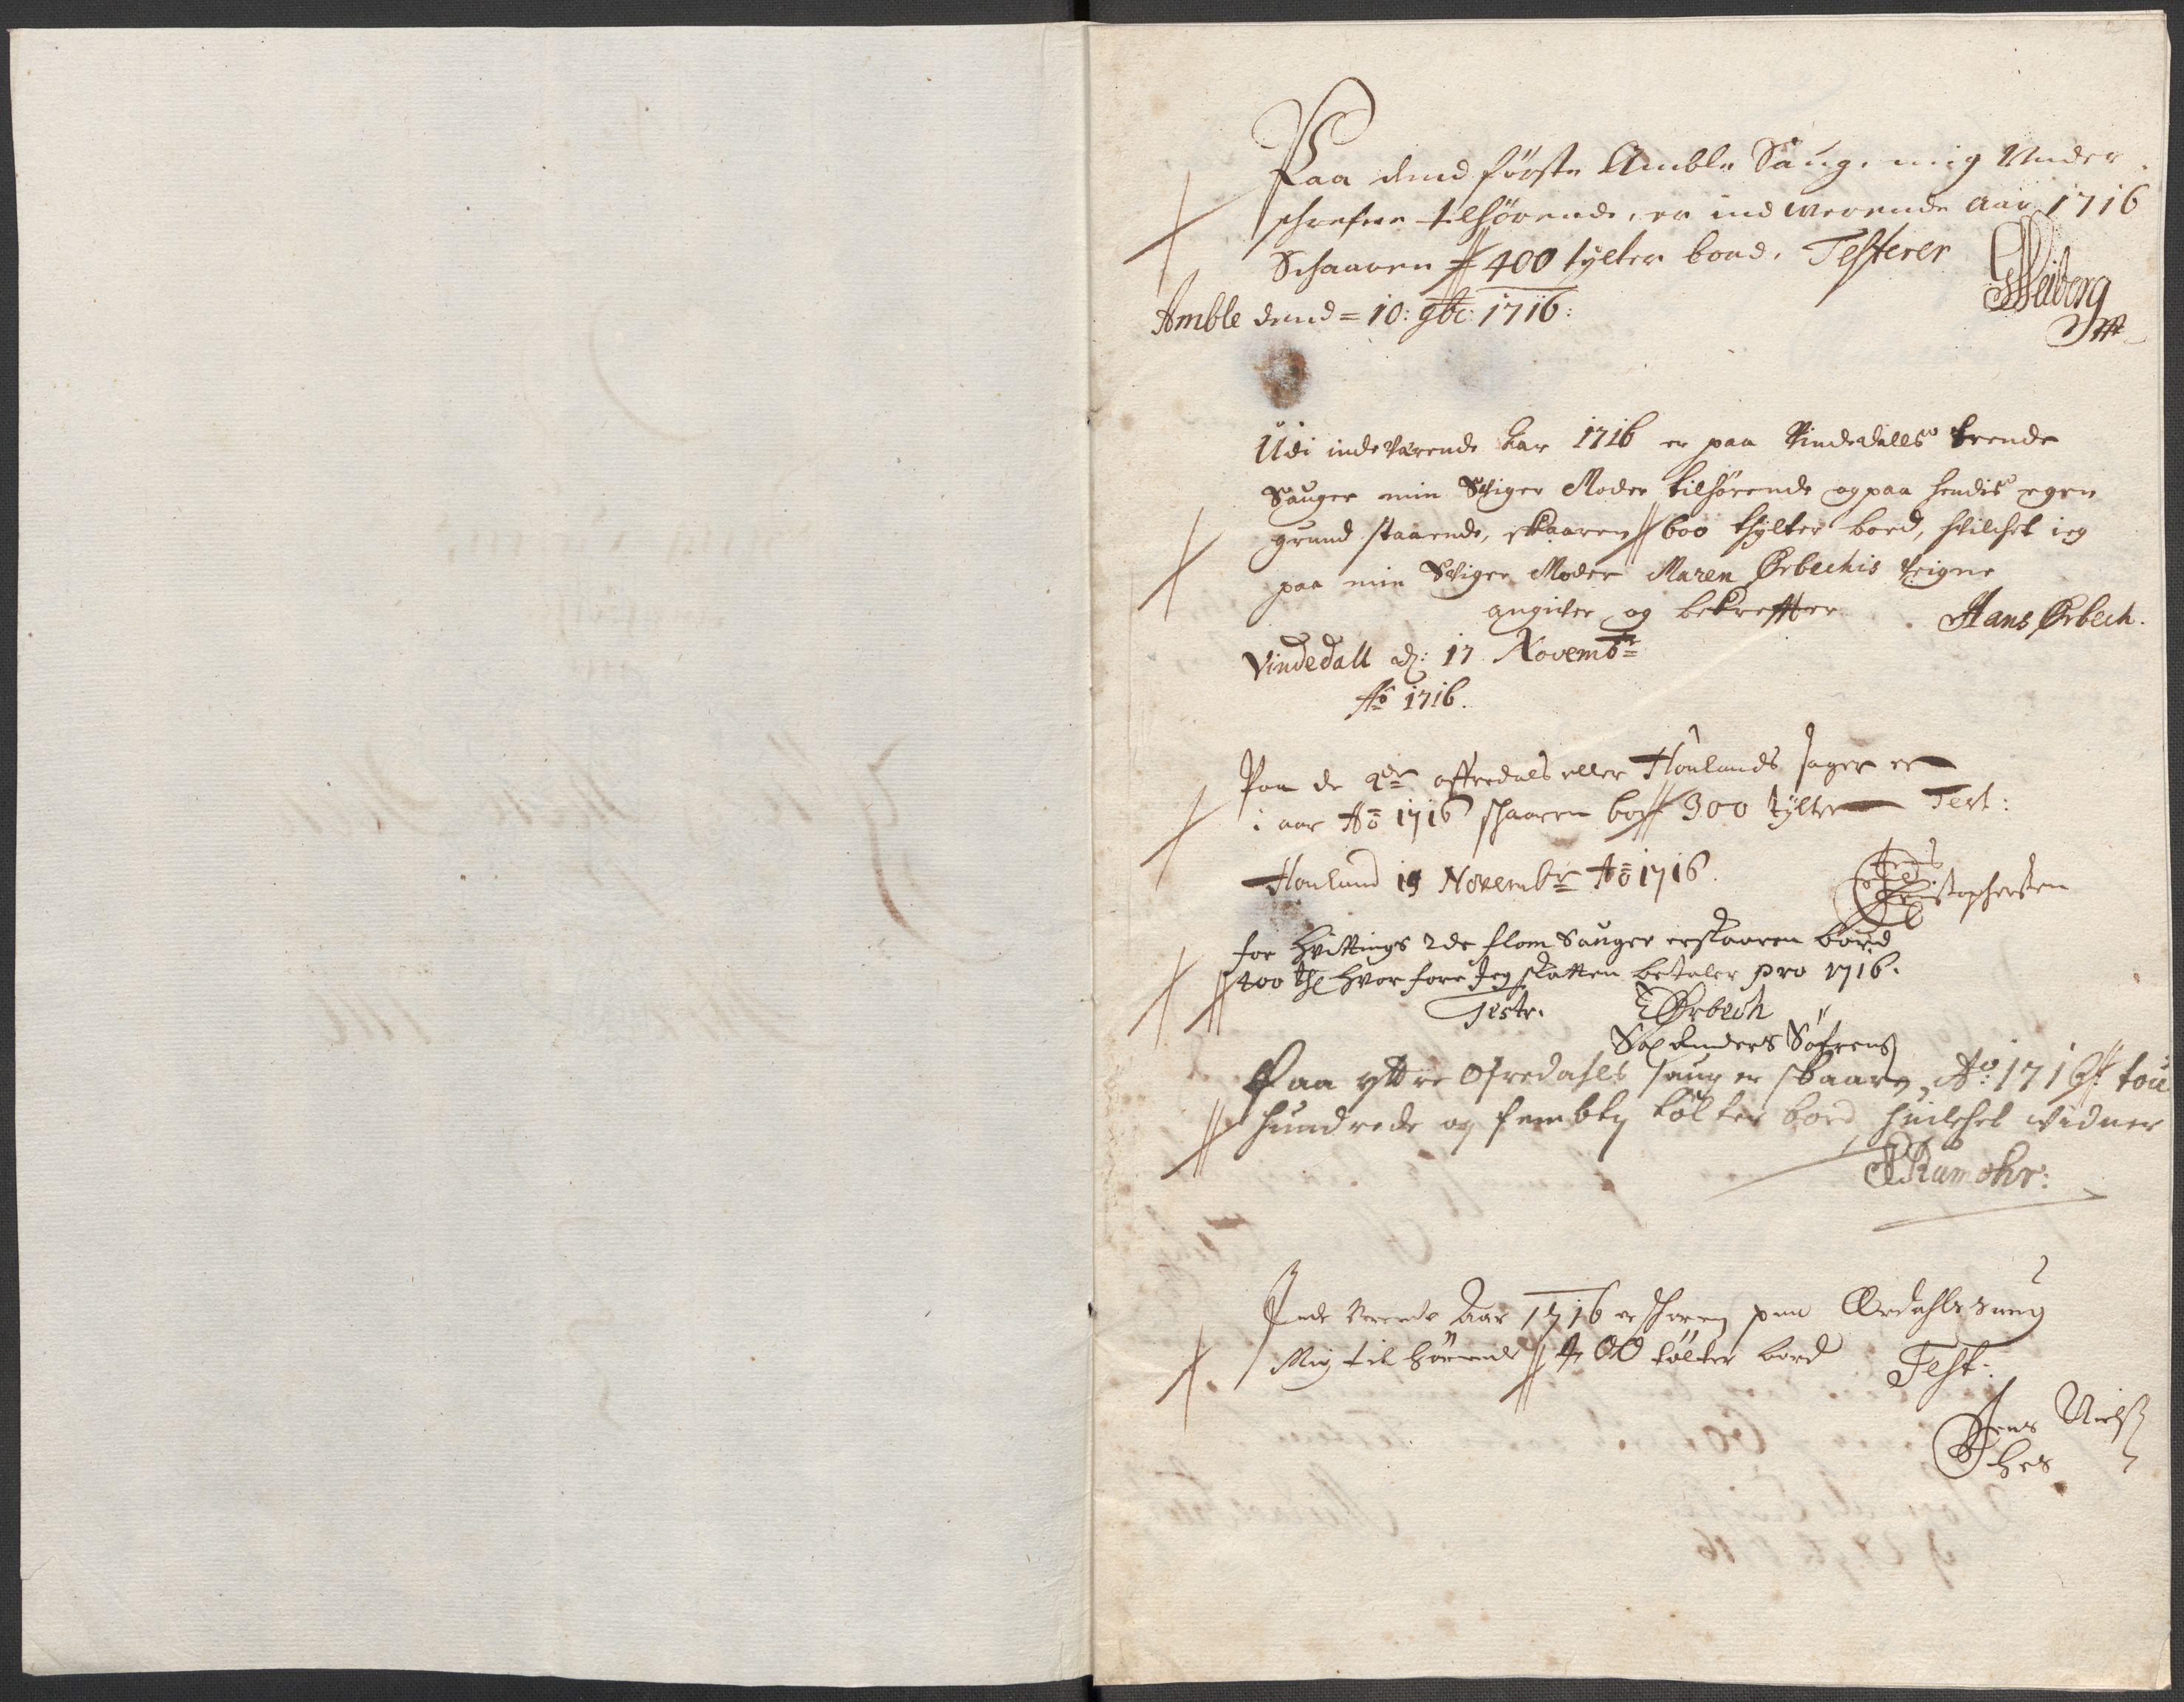 Paa dend förste Amble Saug, mig Under
schrefne tilhörende, er ind werende Aar 1716
Schaaren 400 tylter bord, Testerer
GHeiberg
Amble dend = 10: 9br: 1716:
Udi indeværende Aar 1716 er paa Vindedalls trende
Sauger min Sviger Moder tilhörende og paa hendis egen
grund staaende, skaaren 600 tylter bord, hvilchet ieg
paa min Sviger Moder Maren Ørbechis veigne
angiver og bekreffter Hans Ørbech.
Vindedall d: 17 Novembr
Ao 1716.
Paa de 2de offredals eller Honlands sager er
i aar Ao 1716 skaaren bor 300 tylter Test:
Honland 19 Novembr Ao 1716.
Christophersen
for Hvittings 2de flom Sauger erskaaren bord
400 th hvor fore Jeg skatten betaler pro 1716.
Testr. E Ørbech
Sal Anders Söfrens
Paa yttre Ofredahls saug er skaaren Ao: 1716 tou
hundrede og fembty tölter bord huilchet vidner
Rumohr:
Inde verende Aar 1716 er skoren paa Ordahls saug
Mig til hörende 400 tölter bord Test:
Jens Niels